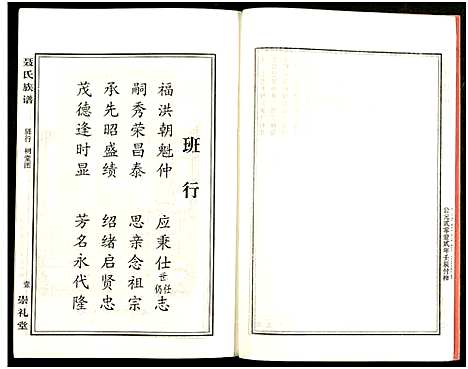 公元贰零壹贰年壬辰付梓
班行
福洪朝魁仲 应乘仕志
世仕
仍
嗣秀荣昌泰 思亲念祖宗
承先昭盛绩 绍绪启贤忠
茂德逢时显 芳名永代隆
聂氏族谱
班行 祠堂图
壹
崇礼堂